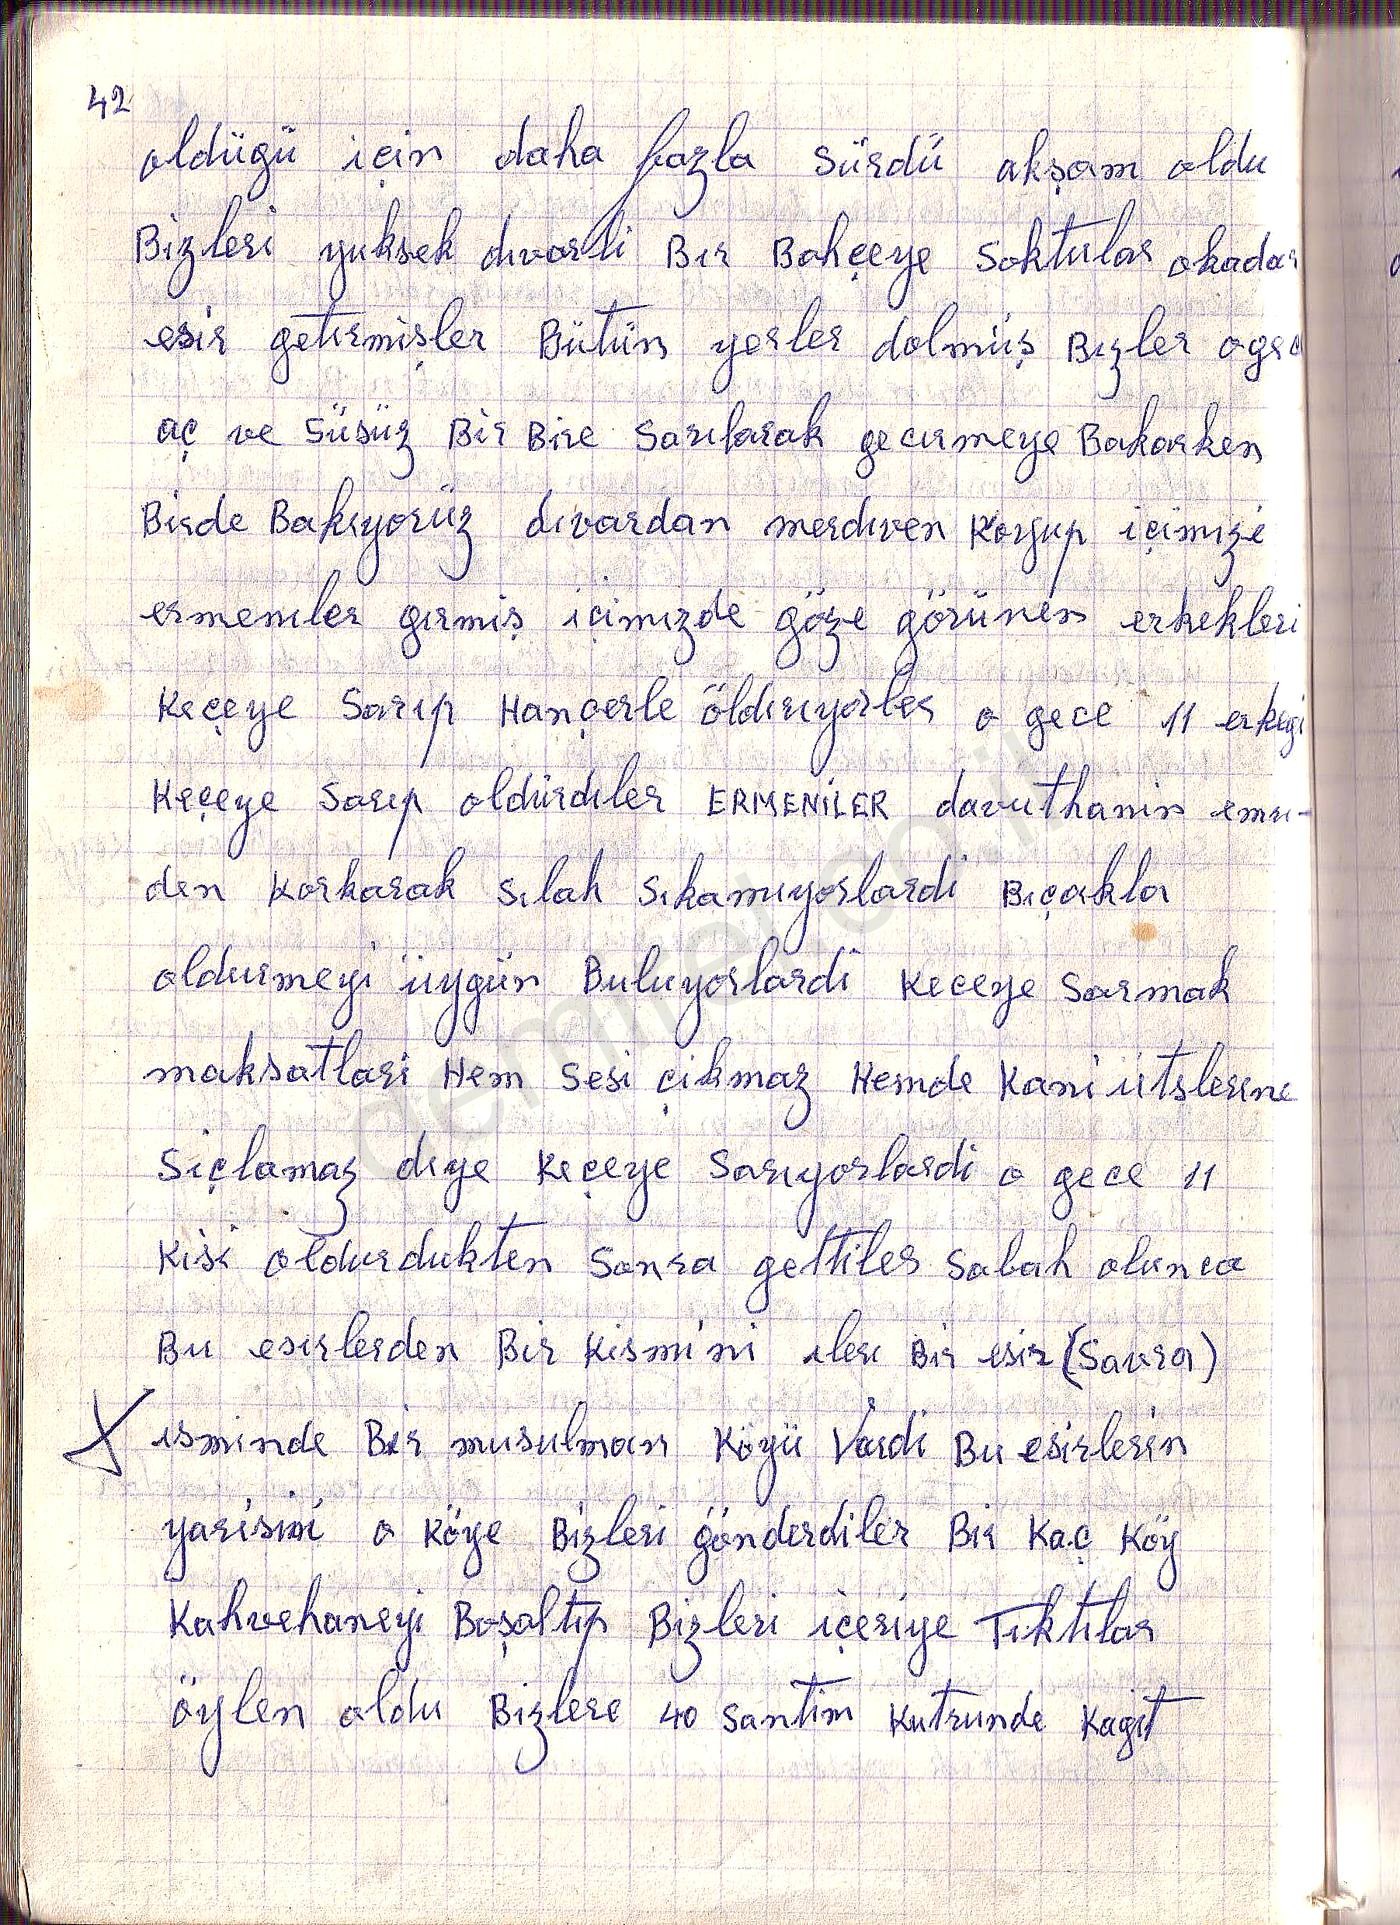 42
oldügü için daha fazla sürdü akşam oldu
Bizleri yuksek dıvarli Bır Bahçeye Soktular okadar
esir getırmişler Bütün yerler dolmüş Bızler ogec
aç ve Süsüz Bir Bire Sarılarak gecırmeye Bakarken
Birde Bakıyorüz dıvardan merdıven Koyup içimızi
ermenıler gırmiş içimızde göze görünen erkekleri
Keçeye Sarıp Hançerle öldürıyorler o gece 11 erkegi
Keçeye Sarıp oldürdıler ERMENİLER davuthanin emrı-
den Korkarak Sılah Sıkamıyorlardi Bıçakla
oldurmeyi üygün Buluyorlardi Keceye Sarmak
maksatlari Hem Sesi çikmaz Hemde Kani ütslerıne
Siçlamaz dıye Keçeye Sarıyorlardi o gece 11
Kişi oldurdukten Sonra gettiler Sabah olunca
Bu esırlerden Bir Kismini ılerı Bir esir (Savra)
ısminde Bir musulman Köyü Vardi Bu esirlerin
yarisini o Köye Bizleri gönderdiler Bir Kaç Köy
Kahvehaneyi Boşaltıp Bizleri içeriye Tıktılar
öylen oldu Bizlere 40 Santim Kutrunde Kagıt